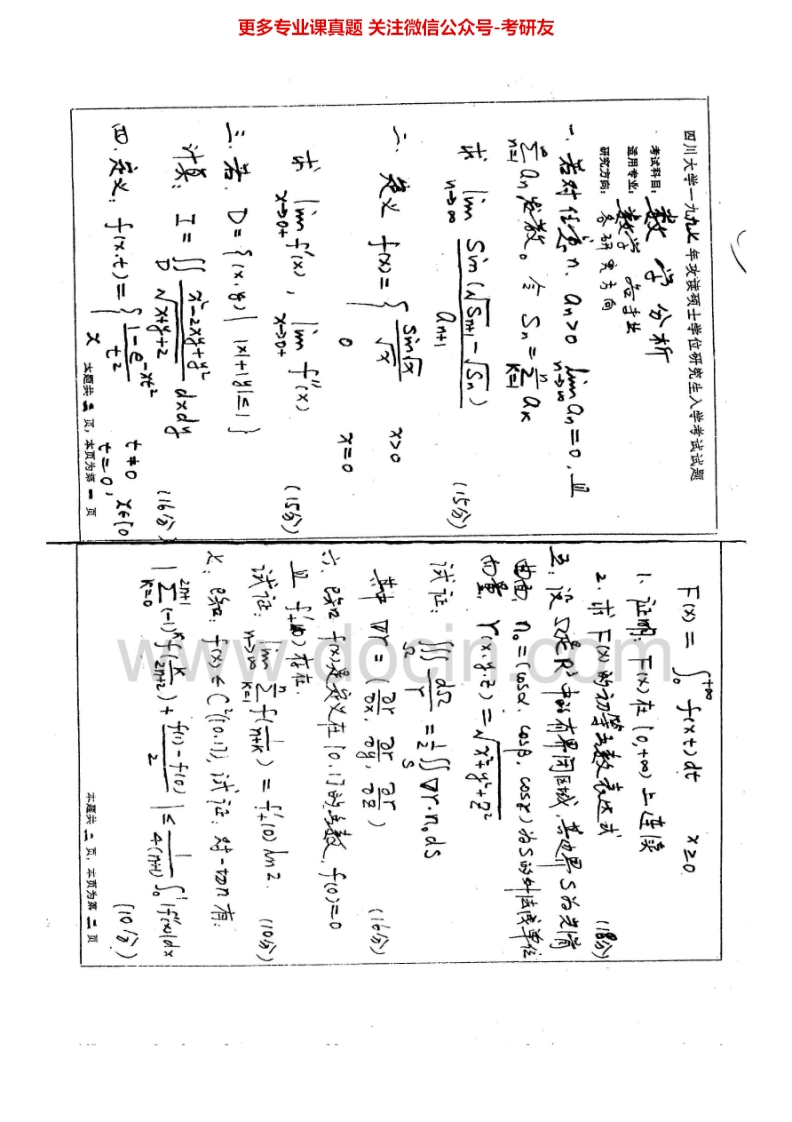 更多专业课真题 关注微信公众号-考研友
四川大学一九九七年攻读硕士学位研究生入学考试试题
考试科目：数学分析
适用专业：数学各专业
研究方向：各研究方向
一、若对任意 n. aₙ>0 lim_{n→∞} aₙ=0，且
∑_{n=1}^{∞} aₙ发散。令 Sₙ=∑_{k=1}^{n} aₖ
求 lim_{n→∞} Sin(√Sₙ₊₁ - √Sₙ) / aₙ₊₁ (15分)
二、定义 f(x)={ sin√x / √x x>0
0 x=0
求 lim_{x→0+} f'(x), lim_{x→0+} f''(x) (15分)
三、若. D={(x,y) | |x|+|y|≤1}
计算: I=∬_D (x²-2xy+y²)/√(x+y+2) dxdy (16分)
四、定义: f(x,t)={ (1-e^{-xt²})/t² t≠0 x∈[0
x t=0,
本题共 二 页，本页为第 一 页
F(x)=∫₀^{+∞} f(x,t)dt x≥0.
1. 证明: F(x)在[0,+∞)上连续
2. 求 F(x)的初等函数表达式 (18分)
五、设 Ω是R³中的有界闭区域，其边界S为光滑
曲面, n₀=(cosα, cosβ, cosγ)为S的外法线单位
向量, r(x,y,z)=√(x²+y²+z²)
试证: ∭_Ω dΩ/r = ½∬_S ∇r·n₀ds
其中 ∇r=(∂r/∂x, ∂r/∂y, ∂r/∂z) (16分)
六、已知 f(x)是定义在[0.1]的函数, f(0)=0
且 f'₊(0)存在.
试证: lim_{n→∞} ∑_{k=1}^{n} f(1/(n+k)) = f'₊(0) ln2. (10分)
七: 已知: f(x)∈C²[0.1], 试证: 对一切n有:
|∑_{k=0}^{2n+1} (-1)^k f(k/(2n+2)) + (f(1)-f(0))/2| ≤ 1/(4(n+1)) ∫₀¹|f''(x)|dx
(10分)
本题共 二 页，本页为第 二 页
www.docin.com